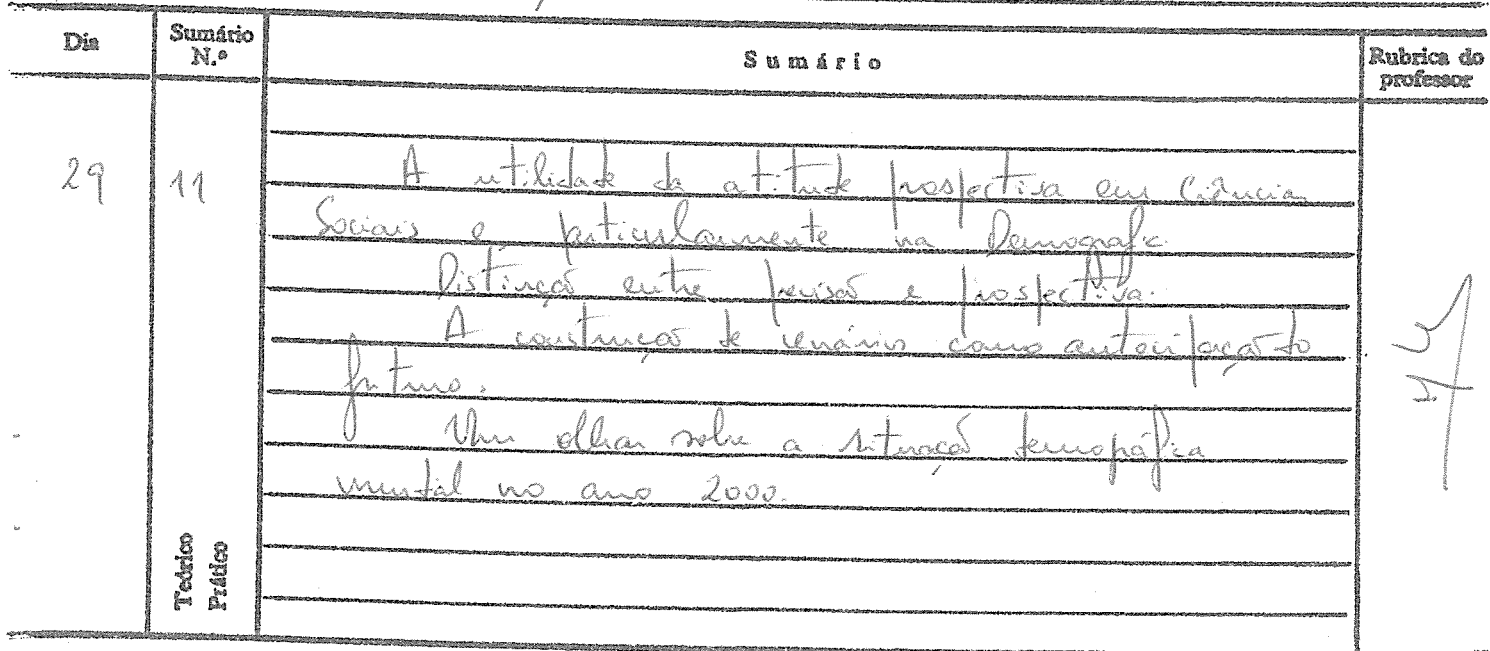 Dia
Sumário N.º
Sumário
Rubrica do professor
29 11
A utilidade da atitude prospectiva em Ciências
Sociais e particularmente na Demografia
Distinção entre previsão e prospectiva.
A construção de cenários como antecipação do
futuro.
Um olhar sobre a situação demográfica
mundial no ano 2000.
Teórico
Prático